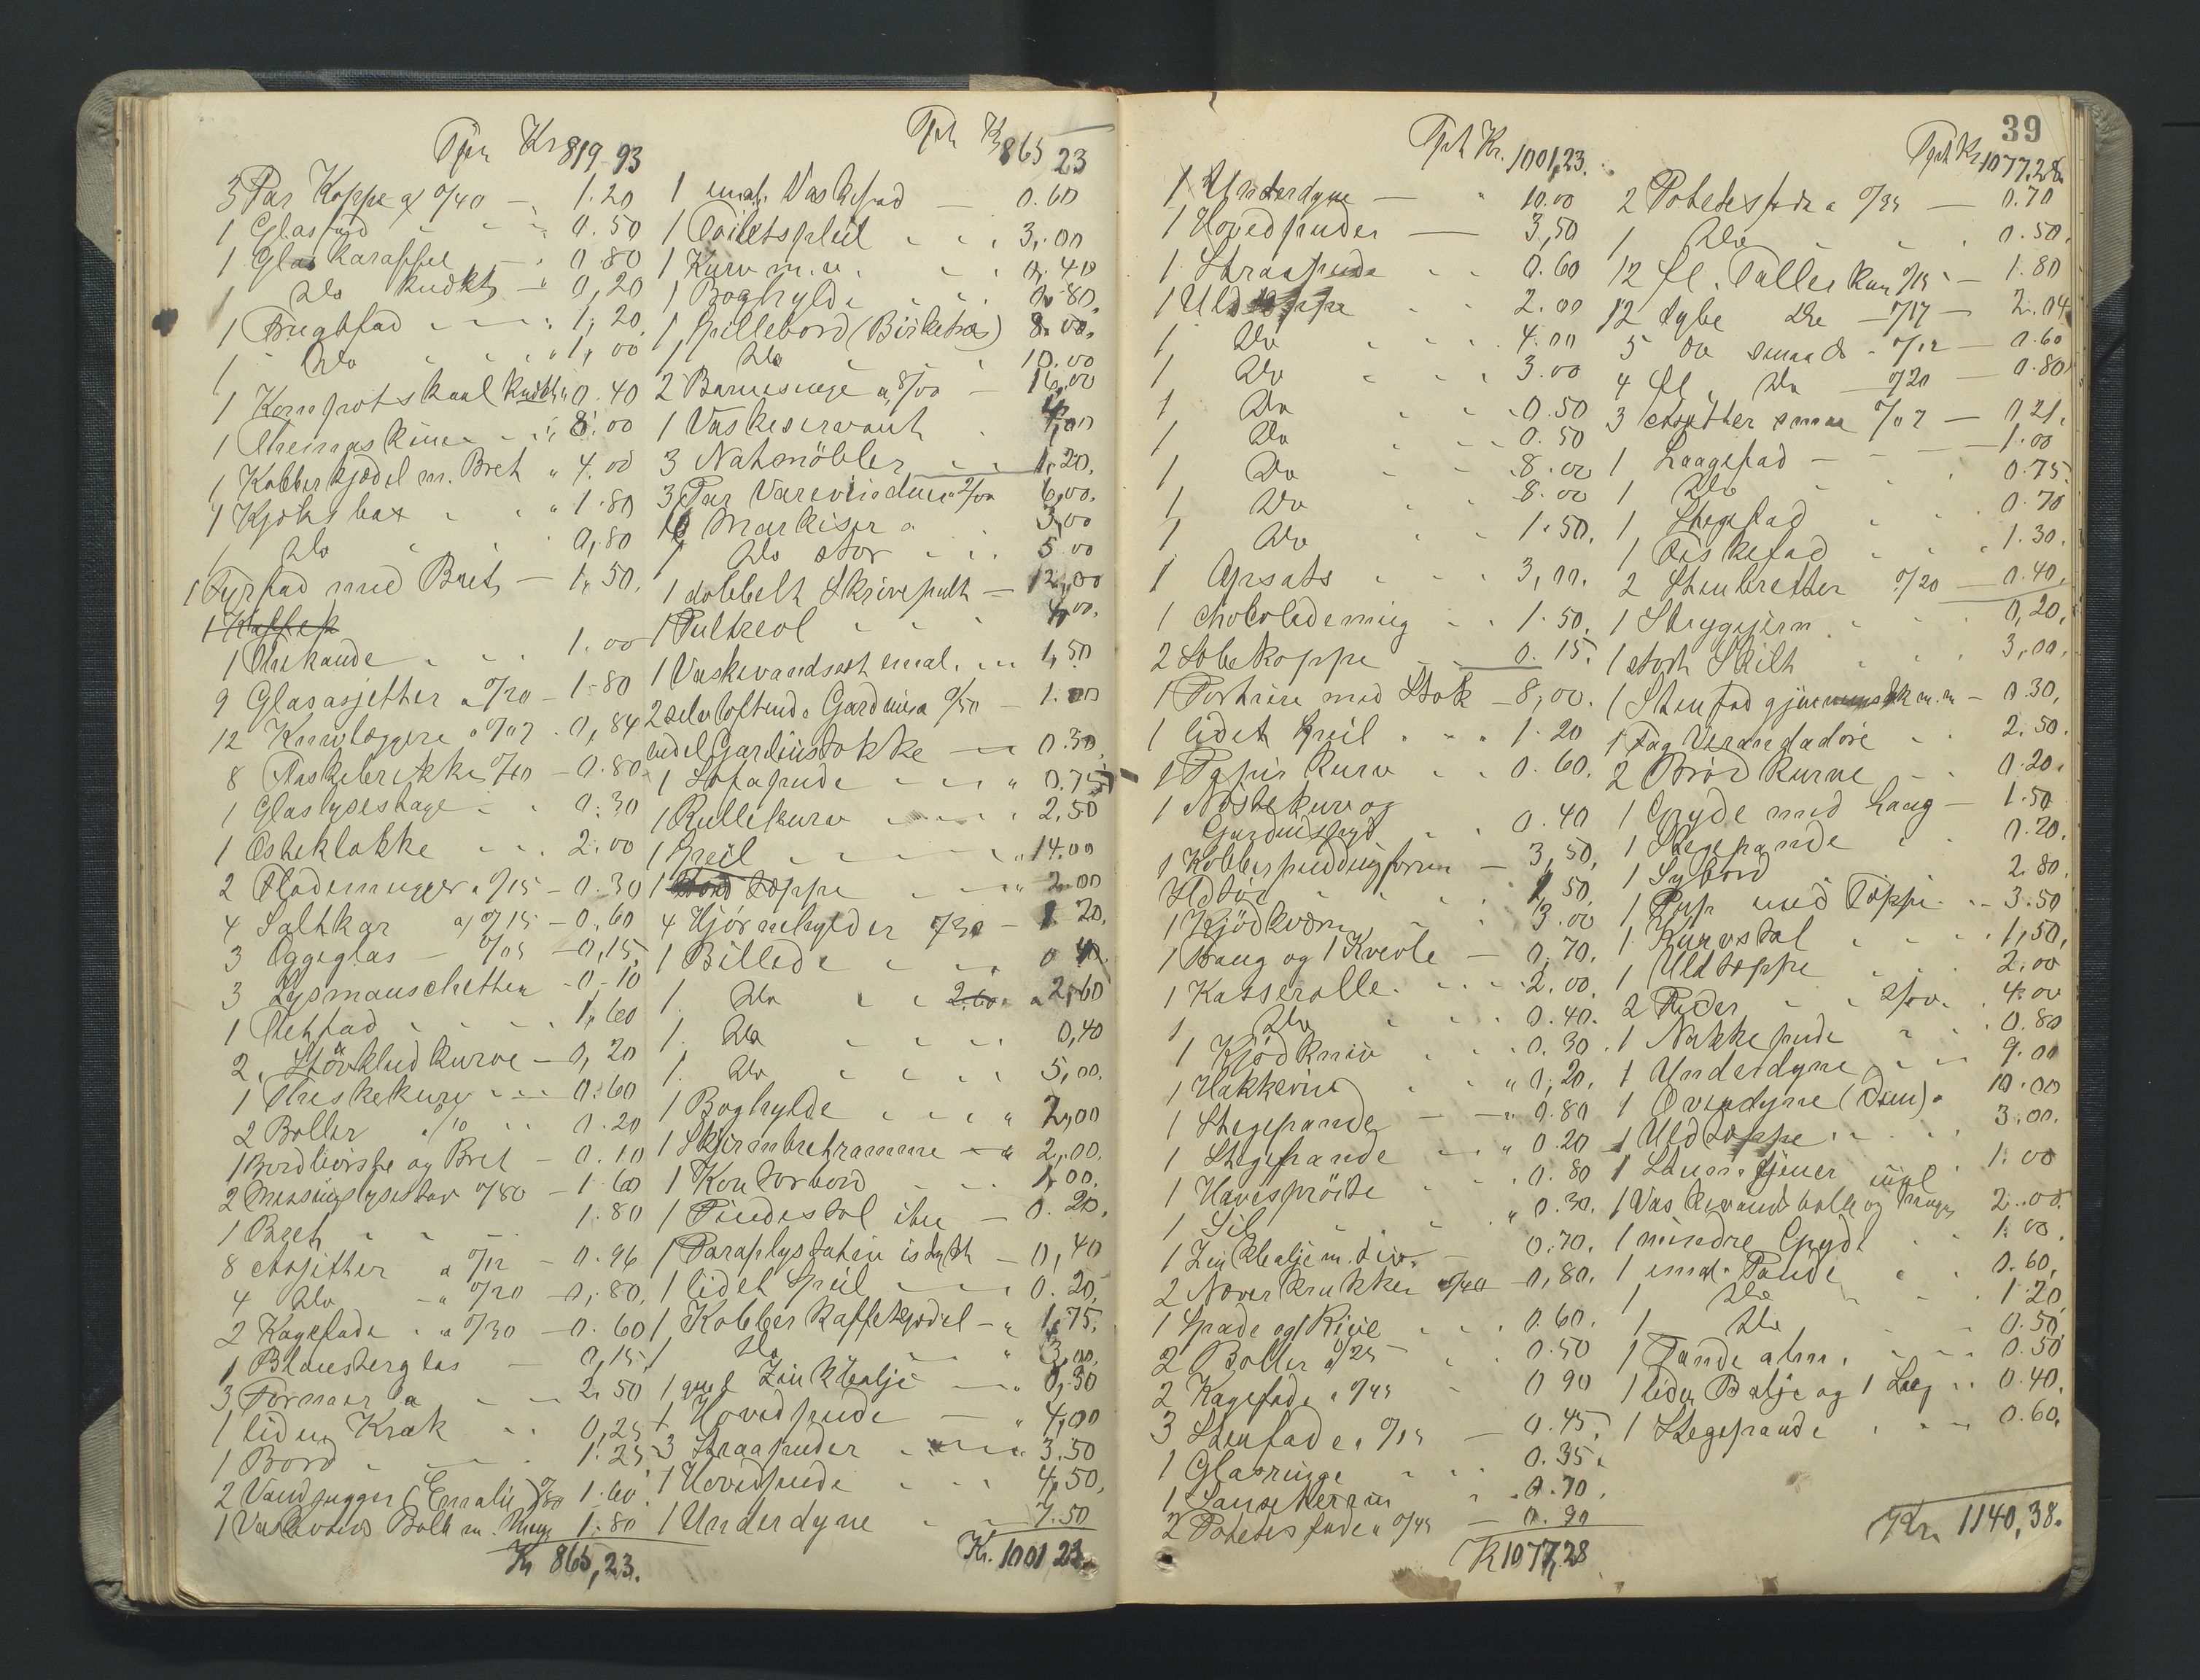 Tpt Kr 819 93
3 Par Koppe a 0/40 — 1.20
1 Glasfad 0.50
1 Glaskaraffel 0.80
1 Do knækt 0,20
1 Frugtfad 1,20
1 Do 1,00
1 Kompotskaal knækt 0.40
1 Themaskine 8.00
1 Kobberkjedel m. Bret 4.00
1 Kjøks 1.80
1 Do 0,80
1 Fyrfad med Bret — 1,50
1 Thekande 1.00
9 Glasasjetter a 0/20 — 1.80
12 Knivlæggere a 0/07 0,84
8 Flaskebrikker 0/10 — 0.80
1 Glaslysestage 0.30
1 Osteklokke 2.00
2 Flødemugger a 0/15 — 0.30
4 Saltkar a 0/15 — 0.60
3 Eggeglas — 0/05 — 0,15
3 Lysmanschetter 0.10
1 Thefad 1,60
2 Støvkludkurve — 0,20
1 Theskekurv 0.60
2 Boller a/10 0.20
1 Bordbørste og Bret — 0.10
2 Messinglysestar 0/80 — 1.60
1 Bret 1.80
8 Assjetter a 0/12 — 0.96
4 Do 0/20 — 0,80
2 Kagefade a 0/30 — 0.60
1 Blomsterglas 0,15
3 Formaer a 2.50
1 liden Krak 0,25
1 Bord 1.25
2 Vandmugger (Emalie) 0/80 1.60
1 Vaskevands Bolle m. Mugge 1.80
Kr 865,23.
Tpt Kr 865 23
1 emal. Vaskefad — 0.60
1 Toiletspeil 3.00
1 Kurv m. v. 0.40
1 Boghylde 0.80
1 Spillebord (Birketræ) 8.00
1 Do 10.00
2 Barnesenge a 8/00 16.00
1 Vaskeservant
3 Natmöbler 1.20
3 Par Varevinduer a 2/00 6,00
Markiser a 3,00
1 Do stor 5.00
1 dobbelt Skrivepult — 12,00
1 Pultreol 4,00
1 Vaskevandssæt emal. 1,50
2 Gardiner a 0/50 — 1.00
endel Gardinstokke — 0.30
1 Sofapude 0.75
1 Rullekurv 2,50
1 Speil 14.00
1 Tæppe 2.00
4 Hjørnehylder 0/30 — 1 20
1 Billede 0 40
1 Do 2.60 2,60
1 Do 0,40
1 Do 5,00
1 Boghylde 2,00
1 Skjermbretramme — 2,00
1 Kontorbord 1,00
1 Pindestol itu — 0.20
1 Paraplystativ istykk — 0,40
1 lidet Speil 0.20
1 Kobber Kaffekjedel — 1.75
1 Do 3,00
1 gml Zinkbalje 0,30
1 Hovedpude — 4,00
3 Straapuder 3.50
1 Hovedpude 4,50
1 Underdyne 7.50
Kr. 1001 23.
39
Tpt Kr. 1001,23.
1 Underdyne — 10.00
1 Hovedpuder — 3,50
1 Straapude 0.60
1 Uldtæppe 2.00
1 Do 4.00
1 Do 3.00
1 Do 0.50
1 Do 0.50
1 Do 8.00
1 Do 8.00
1 Do 1.50
1 Opsats 3,00
1 Chokolademug 1.50
2 Løbekoppe 0.15
1 Portiere med Stok — 8,00.
1 lidet Speil 1.20
1 Papir kurv 0.60
1 Nøstekurv og
0.40
1 Kobberpuddingform — 3,50
1,50
1 Kjödkvern 3.00
1 Traug og 1 Kverle — 0,70.
1 Kasserolle 2.00
1 Do 0.40.
1 Kjödkniv 0.30
1 Hakkekniv 0,20
1 Stegepande 0.80
1 Stegepande 0.20
1 Havesprøite 0.80
1 Sil 0.30
1 Zinkbalje m. div. 0.70
2 Never krukker 0/40 0,80.
1 Spade og 1 Rive 0.60
2 Boller a/25 0.50
2 Kagefade a 0/45 0 90
3 Stenfade a 0/15 — 0.45
1 Glasringe 0.35
1 Sausekerrin 0.70
2 Potetesfade a 0/45 — 0.90
Kr 1077,28
Tpt Kr 1077.28
2 Potetesfade a 0/35 — 0.70
1 Do 0.50
12 fl. Tallerkner 0/15 1.80
12 dybe Do — 0/17 — 2.04
5 do smaa do 0/12 — 0.60
4 fl. Do — 0/20 — 0.80
3 Assjetter smaa 0/07 — 0 21
1 Laagefad — 1.00
1 Do 0.75
1 Stegefad 0.70
1 Fiskefad 1.30
2 Stenkretter 0/20 — 0.40
1 Strygejern 0,20
1 stort Skilt 3,00
1 Stenfad 0.30
1 Fag Verandadøre 2.50
2 Brød kurve 0.20
1 Gryde med Laag — 1.50
1 Stegepande 0.20.
1 Sybord 2.80
1 Puf med Tæppe 3.50
1 Kurvstol 1,50
1 Uldtæppe 2.00
2 Puder 2/00 4.00
1 Nakkepude 0.80
1 Underdyne 9.00
1 Overdyne (Dun) 10.00
1 Uldtæppe 3.00
1 Stumtjener 1.00
1 Vaskevandsbolle og Mugge 2.00
1 mindre Gryde 1.00
1 emal. Pande 0.60
1 Do 1 20
1 Do 0.50
1 Pande alm. 0.50
1 liden Balje og 1 0.40
1 Stegepande 0.60
Kr. 1140,38.